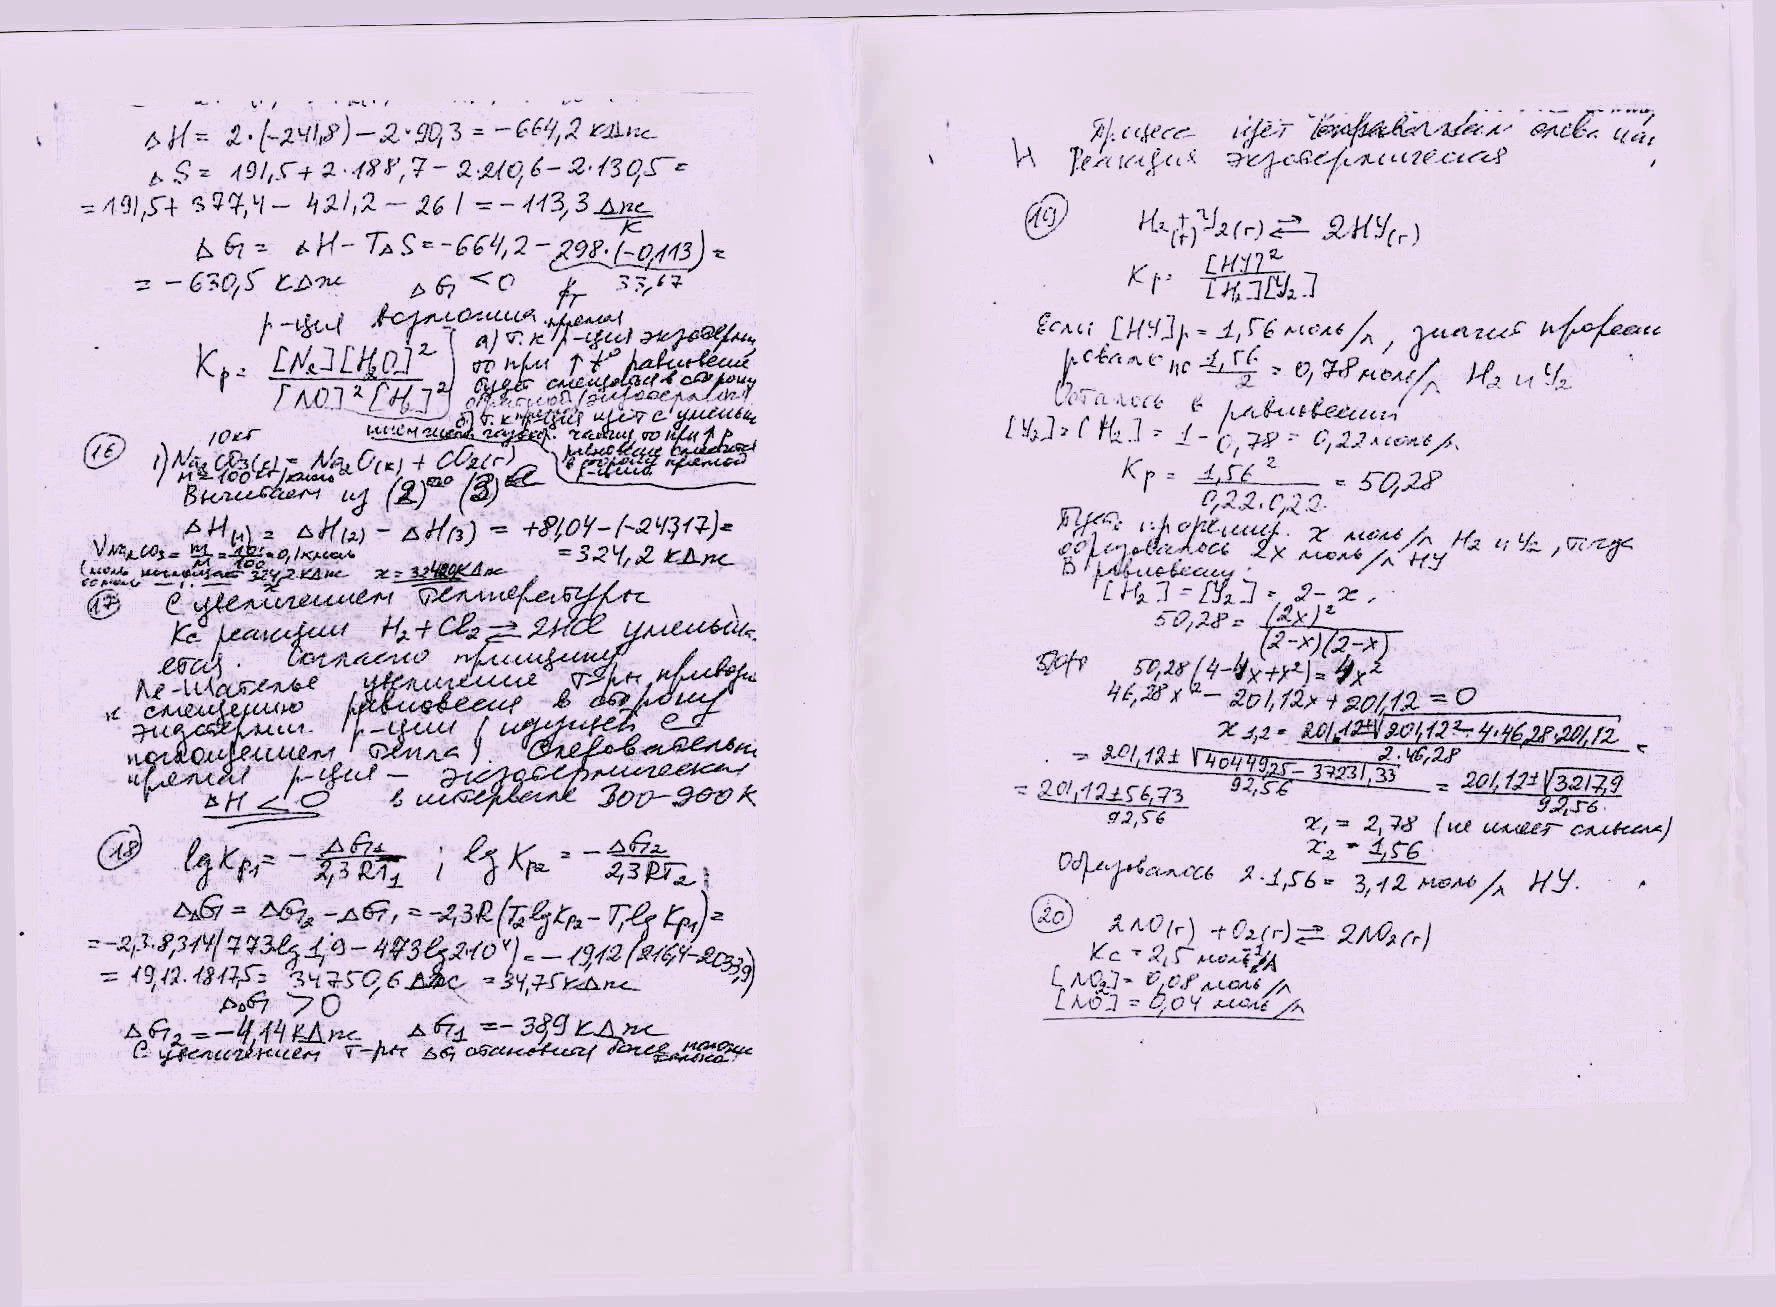 ΔH = 2·(-241,8) - 2·90,3 = -664,2 кДж
ΔS = 191,5 + 2·188,7 - 2·210,6 - 2·130,5 =
= 191,5 + 377,4 - 421,2 - 261 = -113,3 Дж/К
ΔG = ΔH - TΔS = -664,2 - 298·(-0,113) =
33,67
= -630,5 кДж ΔG < 0
р-ция возможна
Kр = [N2][H2O]² / [NO]²[H2]²
а) т.к р-ция экзотерм
то при ↑ t° равновесие
будет смещаться в сторону
обратной (эндотермич)
б) т.к р-ция идет с уменьш
нием числа газообр. частиц то при ↑ р
равновесие смещается
в сторону прямой
р-ции
16
10кг
1) Na2CO3(к) = Na2O(к) + CO2(г)
M = 100 кг/кмоль
Вычитаем из (2) (3)
ΔH(1) = ΔH(2) - ΔH(3) = +81,04 - (-243,17) =
= 324,2 кДж
νNa2CO3 = m/M = 10/100 = 0,1 кмоль
324,2 кДж x = 32420 кДж
17
С увеличением температуры
Kc реакции H2 + Cl2 ⇄ 2HCl уменьш
ется. Согласно принципу
Ле-Шателье увеличение т-ры приводи
к смещению равновесия в сторону
эндотермич. р-ции (идущей с
поглощением тепла). Следовательно
прямая р-ция - экзотермическая
ΔH < 0 в интервале 300-900 К
18
lg Kр1 = - ΔG1 / 2,3RT1 ; lg Kр2 = - ΔG2 / 2,3RT2 ;
ΔΔG = ΔG2 - ΔG1 = -2,3R(T2lgKр2 - T1lgKр1) =
= -2,3·8,314(773lg1,9 - 473lg2·10⁴) = -19,12(216,4-2033,9)
= 19,12·1817,5 = 34750,6 Дж = 34,75 кДж
ΔΔG > 0
ΔG2 = -4,14 кДж ΔG1 = -38,9 кДж
С увеличением т-ры ΔG становится более
Процесс идёт
Реакция экзотермическая
19
H2(г) + У2(г) ⇄ 2HУ(г)
Kр = [HУ]² / [H2][У2]
Если [HУ]р = 1,56 моль/л, значит прореаги
ровало по 1,56/2 = 0,78 моль/л H2 и У2
Осталось в равновесии
[У2] = [H2] = 1 - 0,78 = 0,22 моль/л
Kр = 1,56² / 0,22·0,22 = 50,28
Пусть прореагир. x моль/л H2 и У2, тогда
образовалось 2x моль/л HУ
В равновесии:
[H2] = [У2] = 2 - x,
50,28 = (2x)² / (2-x)(2-x)
50,28(4-4x+x²) = 4x²
46,28x² - 201,12x + 201,12 = 0
x1,2 = 201,12±√201,12² - 4·46,28·201,12 / 2·46,28 =
= 201,12±√40449,25 - 37231,33 / 92,56 = 201,12±√3217,9 / 92,56
= 201,12±56,73 / 92,56
x1 = 2,78 (не имеет смысла)
x2 = 1,56
Образовалось 2·1,56 = 3,12 моль/л HУ.
20
2NO(г) + O2(г) ⇄ 2NO2(г)
Kc = 2,5
[NO2] = 0,08 моль/л
[NO] = 0,04 моль/л